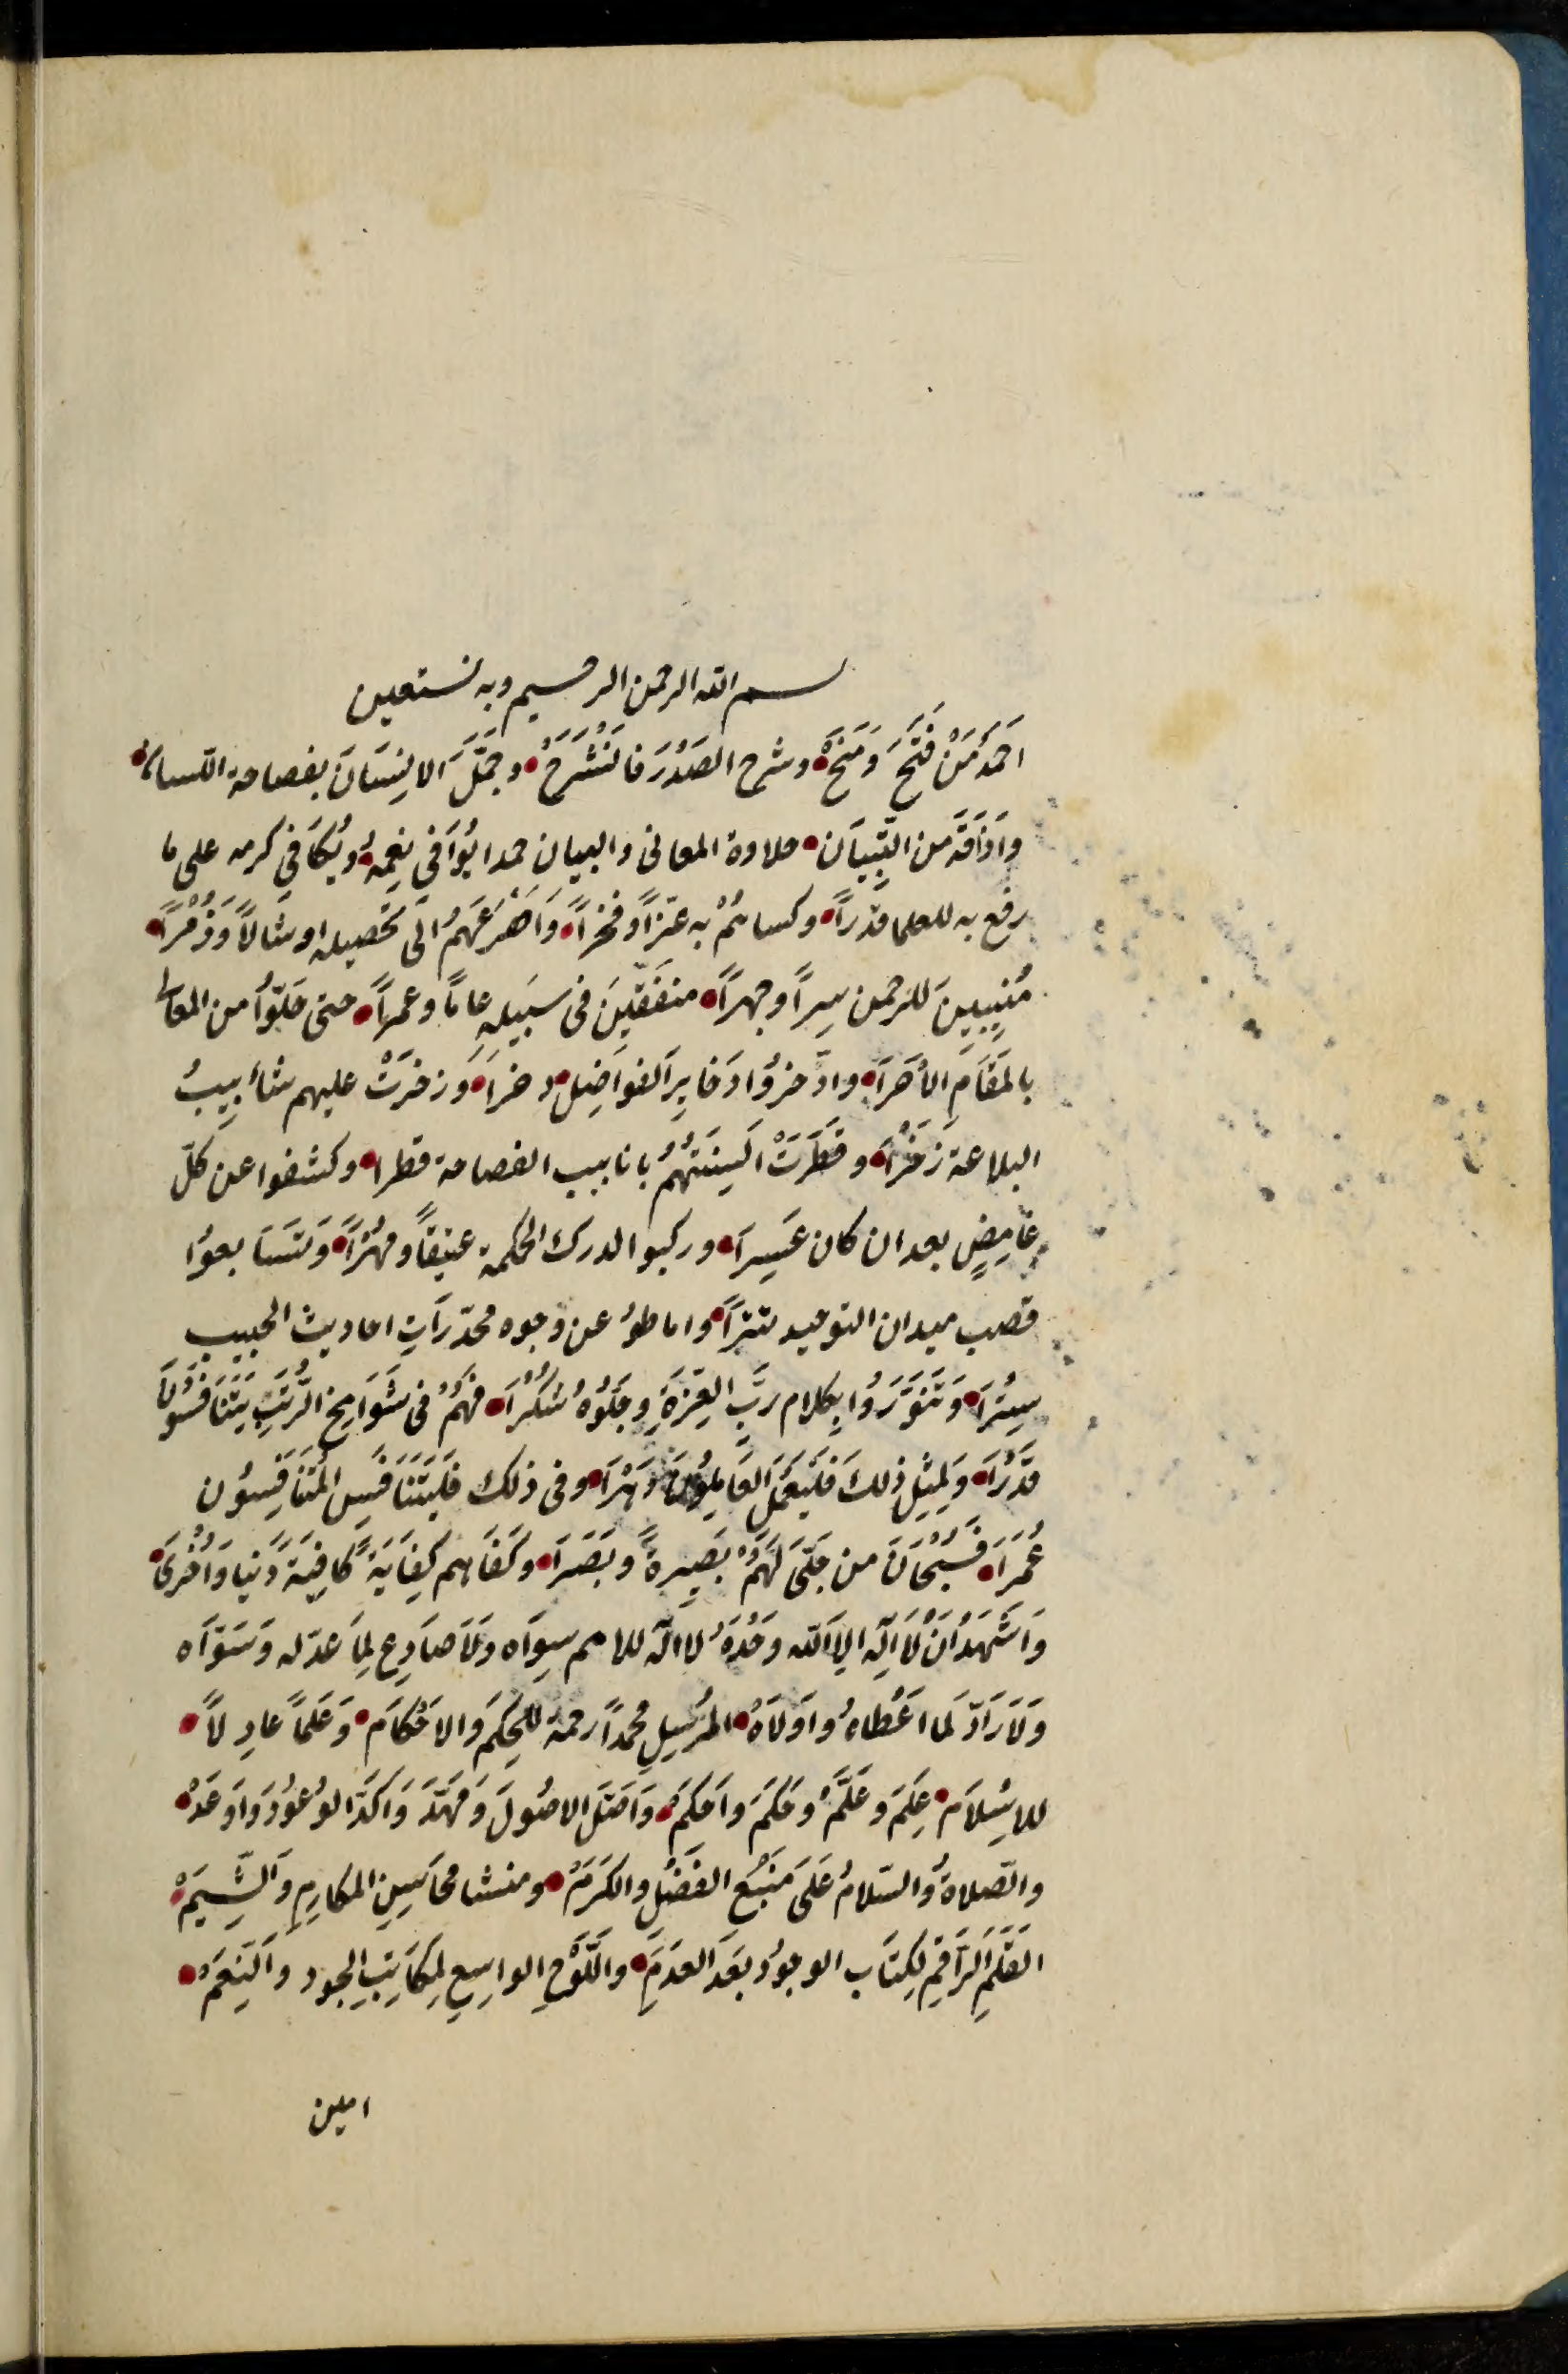 بسم الله الرحمن الرحيم وبه نستعين
احمدُ مَنْ فَتَحَ وَمَنَحْ وشرح الصَدْرَ فَانْشَرَحْ وجمَّلَ الانِسَانَ بفصاحة اللسان
واذَاقَهُ من التِّبيَان حلاوة المعانى والبيان حمدا يُوَافى نِعَمِهُ ويُكَافِي كرمه على ما
رفع به للعلما قدْراً وكساهُمْ به عزّاً وفخراً وَاهْرَعَهُمْ الَى تحصيله ارسَالاً وَزُمْراً
مُنِيبِينَ للرحمن سِراً وجهراً منفقِينَ فى سبِيلهِ عاماً وعمراً حتى حَلّوُا من المعالى
بالمَقَامِ الأحْرَا وادّخروُا ذخَايِرَ الفوَاضِل دخراَ وَزخَرَتْ عليهم شأبيبُ
البلاغة زَخْراَ وقطَرَتْ السِنَتهُمُ بانابيب الفصاحة قطراَ وكشفوا عن كلّ
غامِضٍ بعد ان كان عَسِيراَ وركبوا لدرك الحكمة عنيقاً ومُهْراً وَتسَابعوُا
قصب ميدان التوحيد تترَاً واماطوُ عن وجوه مخدّرَاتِ احاديث الحبيب
سِتْراَ وَتَنوَّرَوُا بِكلام ربِّ العِزةِ وجَلَوُهُ شكُراَ فهُمُ فى شَوَامخِ الرُّتَبِ يَتَنَافَسُونَ
قدْرَاَ ولِمثِلِ ذلكَ فَليَعْمَل العَامِلوُنَ دَهْراَ وفى ذلك فَليَتَنَافَسِ المُتَنَافِسُون
عُمرَاَ فَسُبْحَانَ من جَلّىَ لَهُمْ بَصِيرةً وبَصَرَا وكَفَاهم كِفَايَةً كافِيَةً دَنيا وَأخْرىَ
وَاشَهَدُ انْ لاَ الِه الِا الله وَحْدَهُ لا اله للامم سِوَاه وَلاَ صَادِع لِمَا عدّله وَسَوّاه
وَلاَ رَادّ لَما اعَطاهُ واوَلاَهُ المُرسِلِ محمداً رحمة للحِكَمَ والاحْكَام وَعَلماً عادِلاً
للاسِلاَم عِلمَ وعَلّمَ وحَكمَ واحَكمَ وَاصَّل الاصُولَ وَمَهّدَ وَاكَدَّ الوُعوُدَ وَاوَعَدْ
والصّلاةُ والسّلامُ عَلىَ مَنْبَعِ الفَضْلِ والكَرَمَ ومنشا محَاسِنِ المكارِمِ والشِّيَمْ
القَلَمِ الرَاقِمِ لِكتَاب الوجوُد بَعَدَ العَدَمِ واللّوَحِ الواسِعِ لِمكَاتِبِ الجود والنِعَمْ
امين